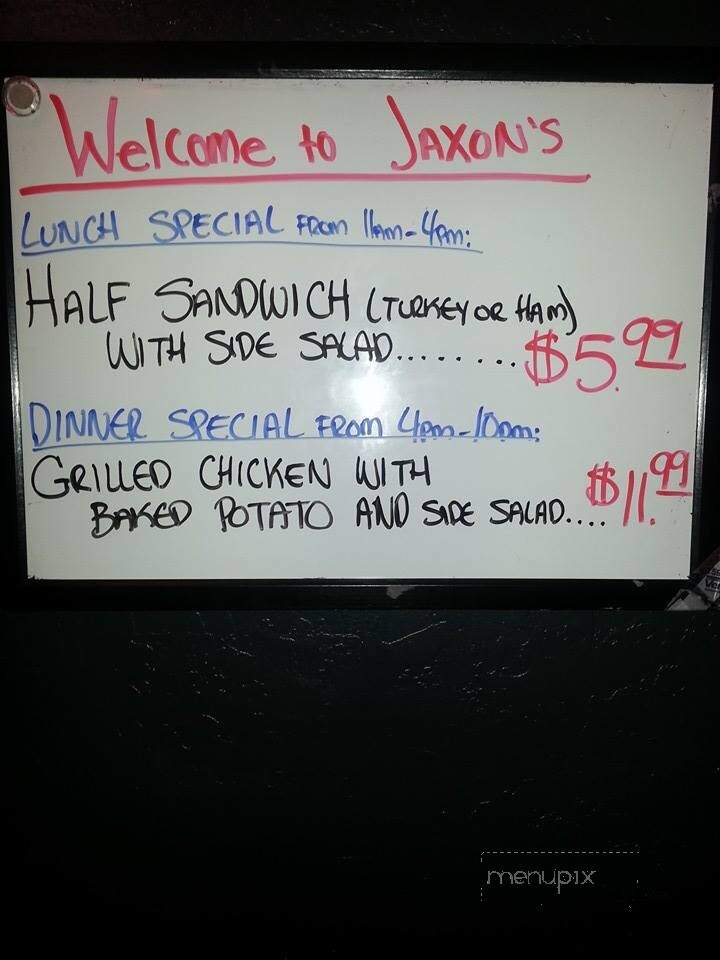 Welcome to JAXON'S
LUNCH SPECIAL FROM 11am-4pm:
HALF SANDWICH (TURKEY OR HAM)
WITH SIDE SALAD........ $5.99
DINNER SPECIAL FROM 4pm-10pm:
GRILLED CHICKEN WITH
BAKED POTATO AND SIDE SALAD.... $11.99
menupix